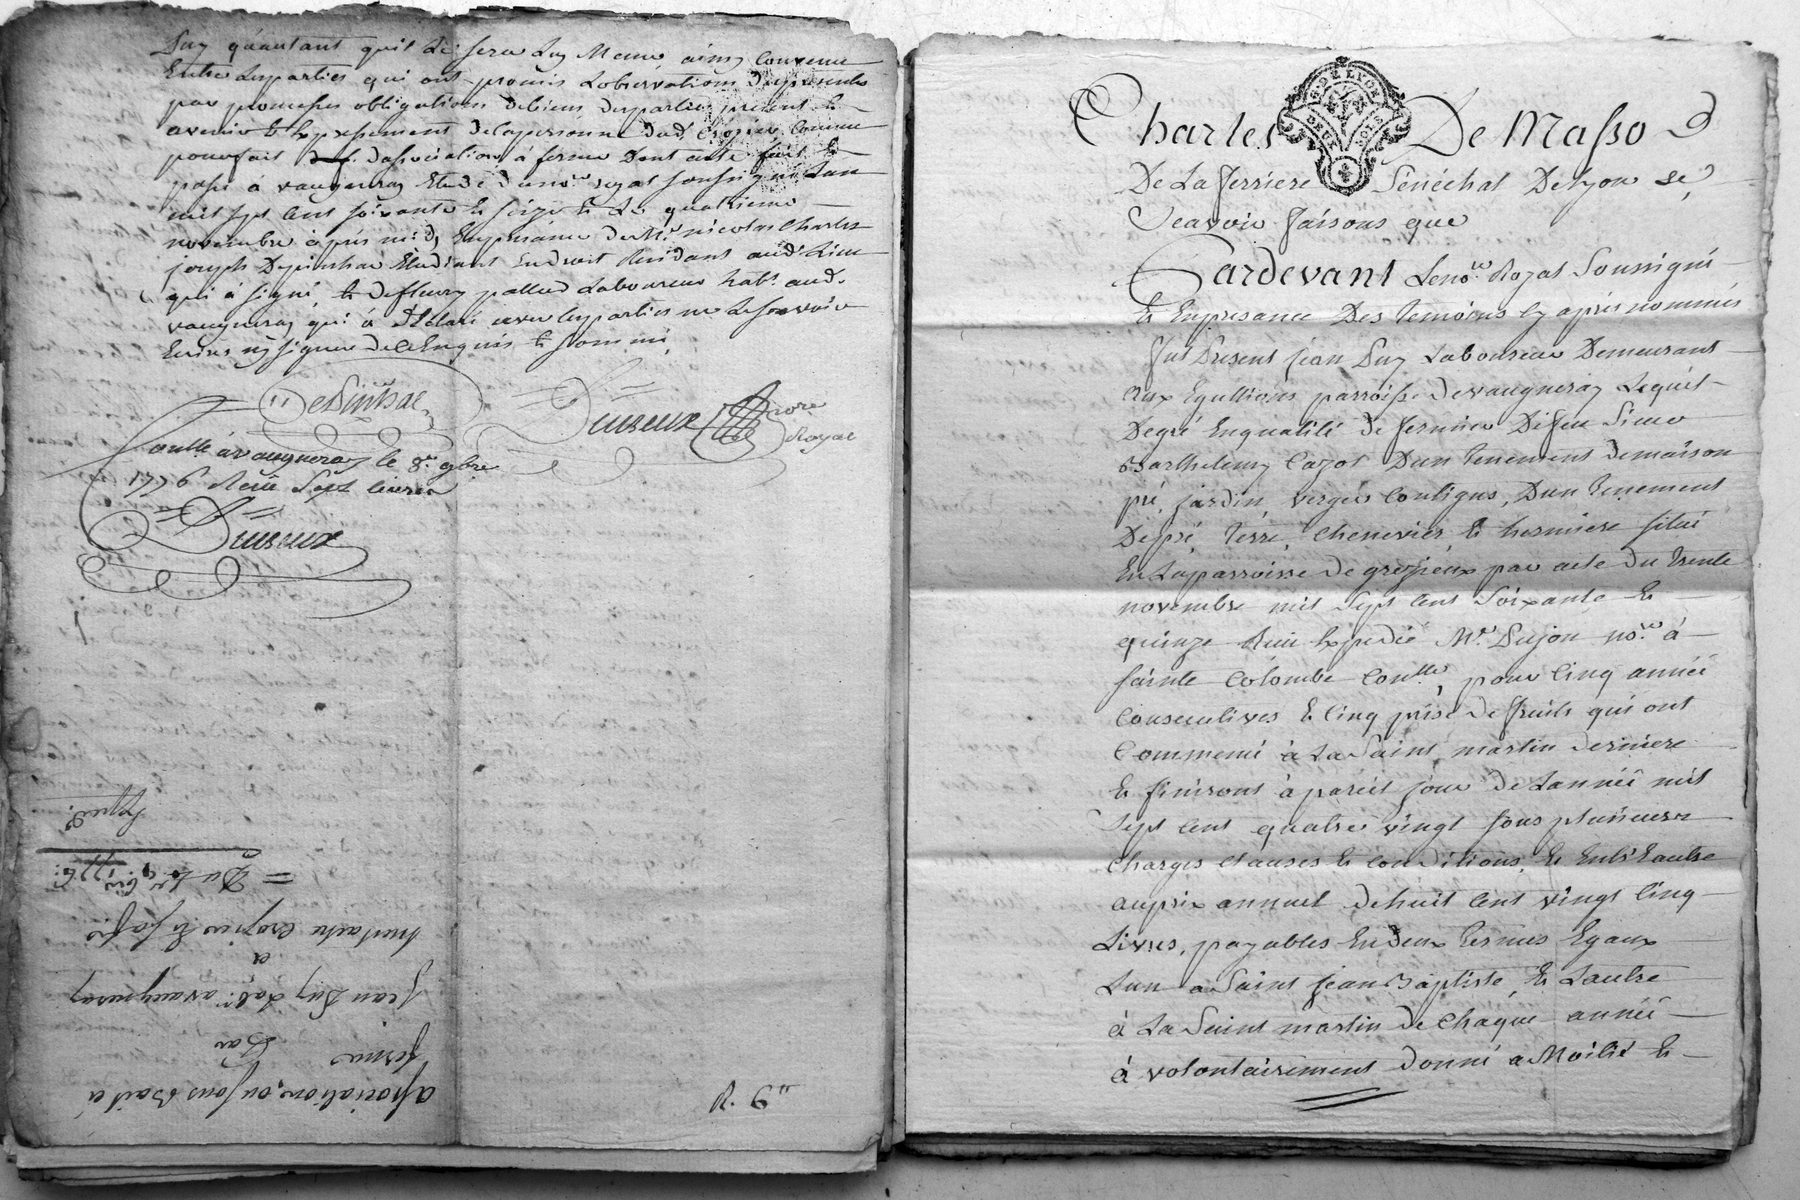 Puy quautant quil Le sera Luy Meme ainsy Convenu
Entre Lesparties qui ont promis Lobservation Desprésentes
par promesses obligations debiens desparties présent Et
avenir Et Expressement Delapersonne dud. Crozier Comme
pour fait Dassociation á ferme Dont acte fait Et
passé á vaugneray Etude dunore. royal soussigné Lan
mil sept Cent soixante Et seize Et Le quatrieme
novembre áprés midy Enpresance de Mr. nicolas Charles
joseph Depinchac Etudiant Endroit Residant aud. Lieu
qui á signé, Et De fleury Laboureur habt. aud.
vaugneray qui á Déclaré avec Lesparties ne Lesavoir
Ecrire ny signer de ce Enquis Et sommé
DePinchac
Dureux nore Royal
Conllé á vaugneray le 8e. 9bre
1776 Reçu Sept livres
Dureux
R. 6"
association, ou sous Bail á
ferme
Par
Jean Puy Labr. á vaugneray
á
crozier Et passé
= Du 4e. 9bre 1776.
Exped.
Charles De Masso
De La ferriere Sénéchal Delyon
G. DE LYON
DEUX SOLS
Scavoir faisons que
Pardevant Lenore. Royal Soussigné
Et Enpresance Des temoins Cy aprés nommés
fut Present Jean Puy Laboureur Demeurant
aux Eguillions parroisse devaugneray Lequel
Degré Enqualité de fermier Defeu Sieur
Barthelemy Cazot Dun tenement demaison
pré, jardin, verger Contigus, Dun tenement
Depré, terre, cheneviér Et hermiere situé
En Laparroisse de grezieux par acte du trente
novembre mil Sept Cent Soixante Et
quinze Reçu Expedié Me. Dujon nore. á
sainte Colombe Conllé, pour Cinq année
Consecutives Et Cinq prise de fruits qui ont
Commencé á La Saint martin derniere
Et finiront á pareil jour de Lannée mil
Sept Cent quatre vingt sous plusieurs
Charges Clauses Et Conditions, Et Entr'Eautre
auprix annuel dehuit Cent vingt Cinq
Livres, payables En deux termes Egaux
Lun a Saint Jean Baptiste, Et Lautre
á La Saint martin de Chaque année
á volontairement Donné a Moitié Et